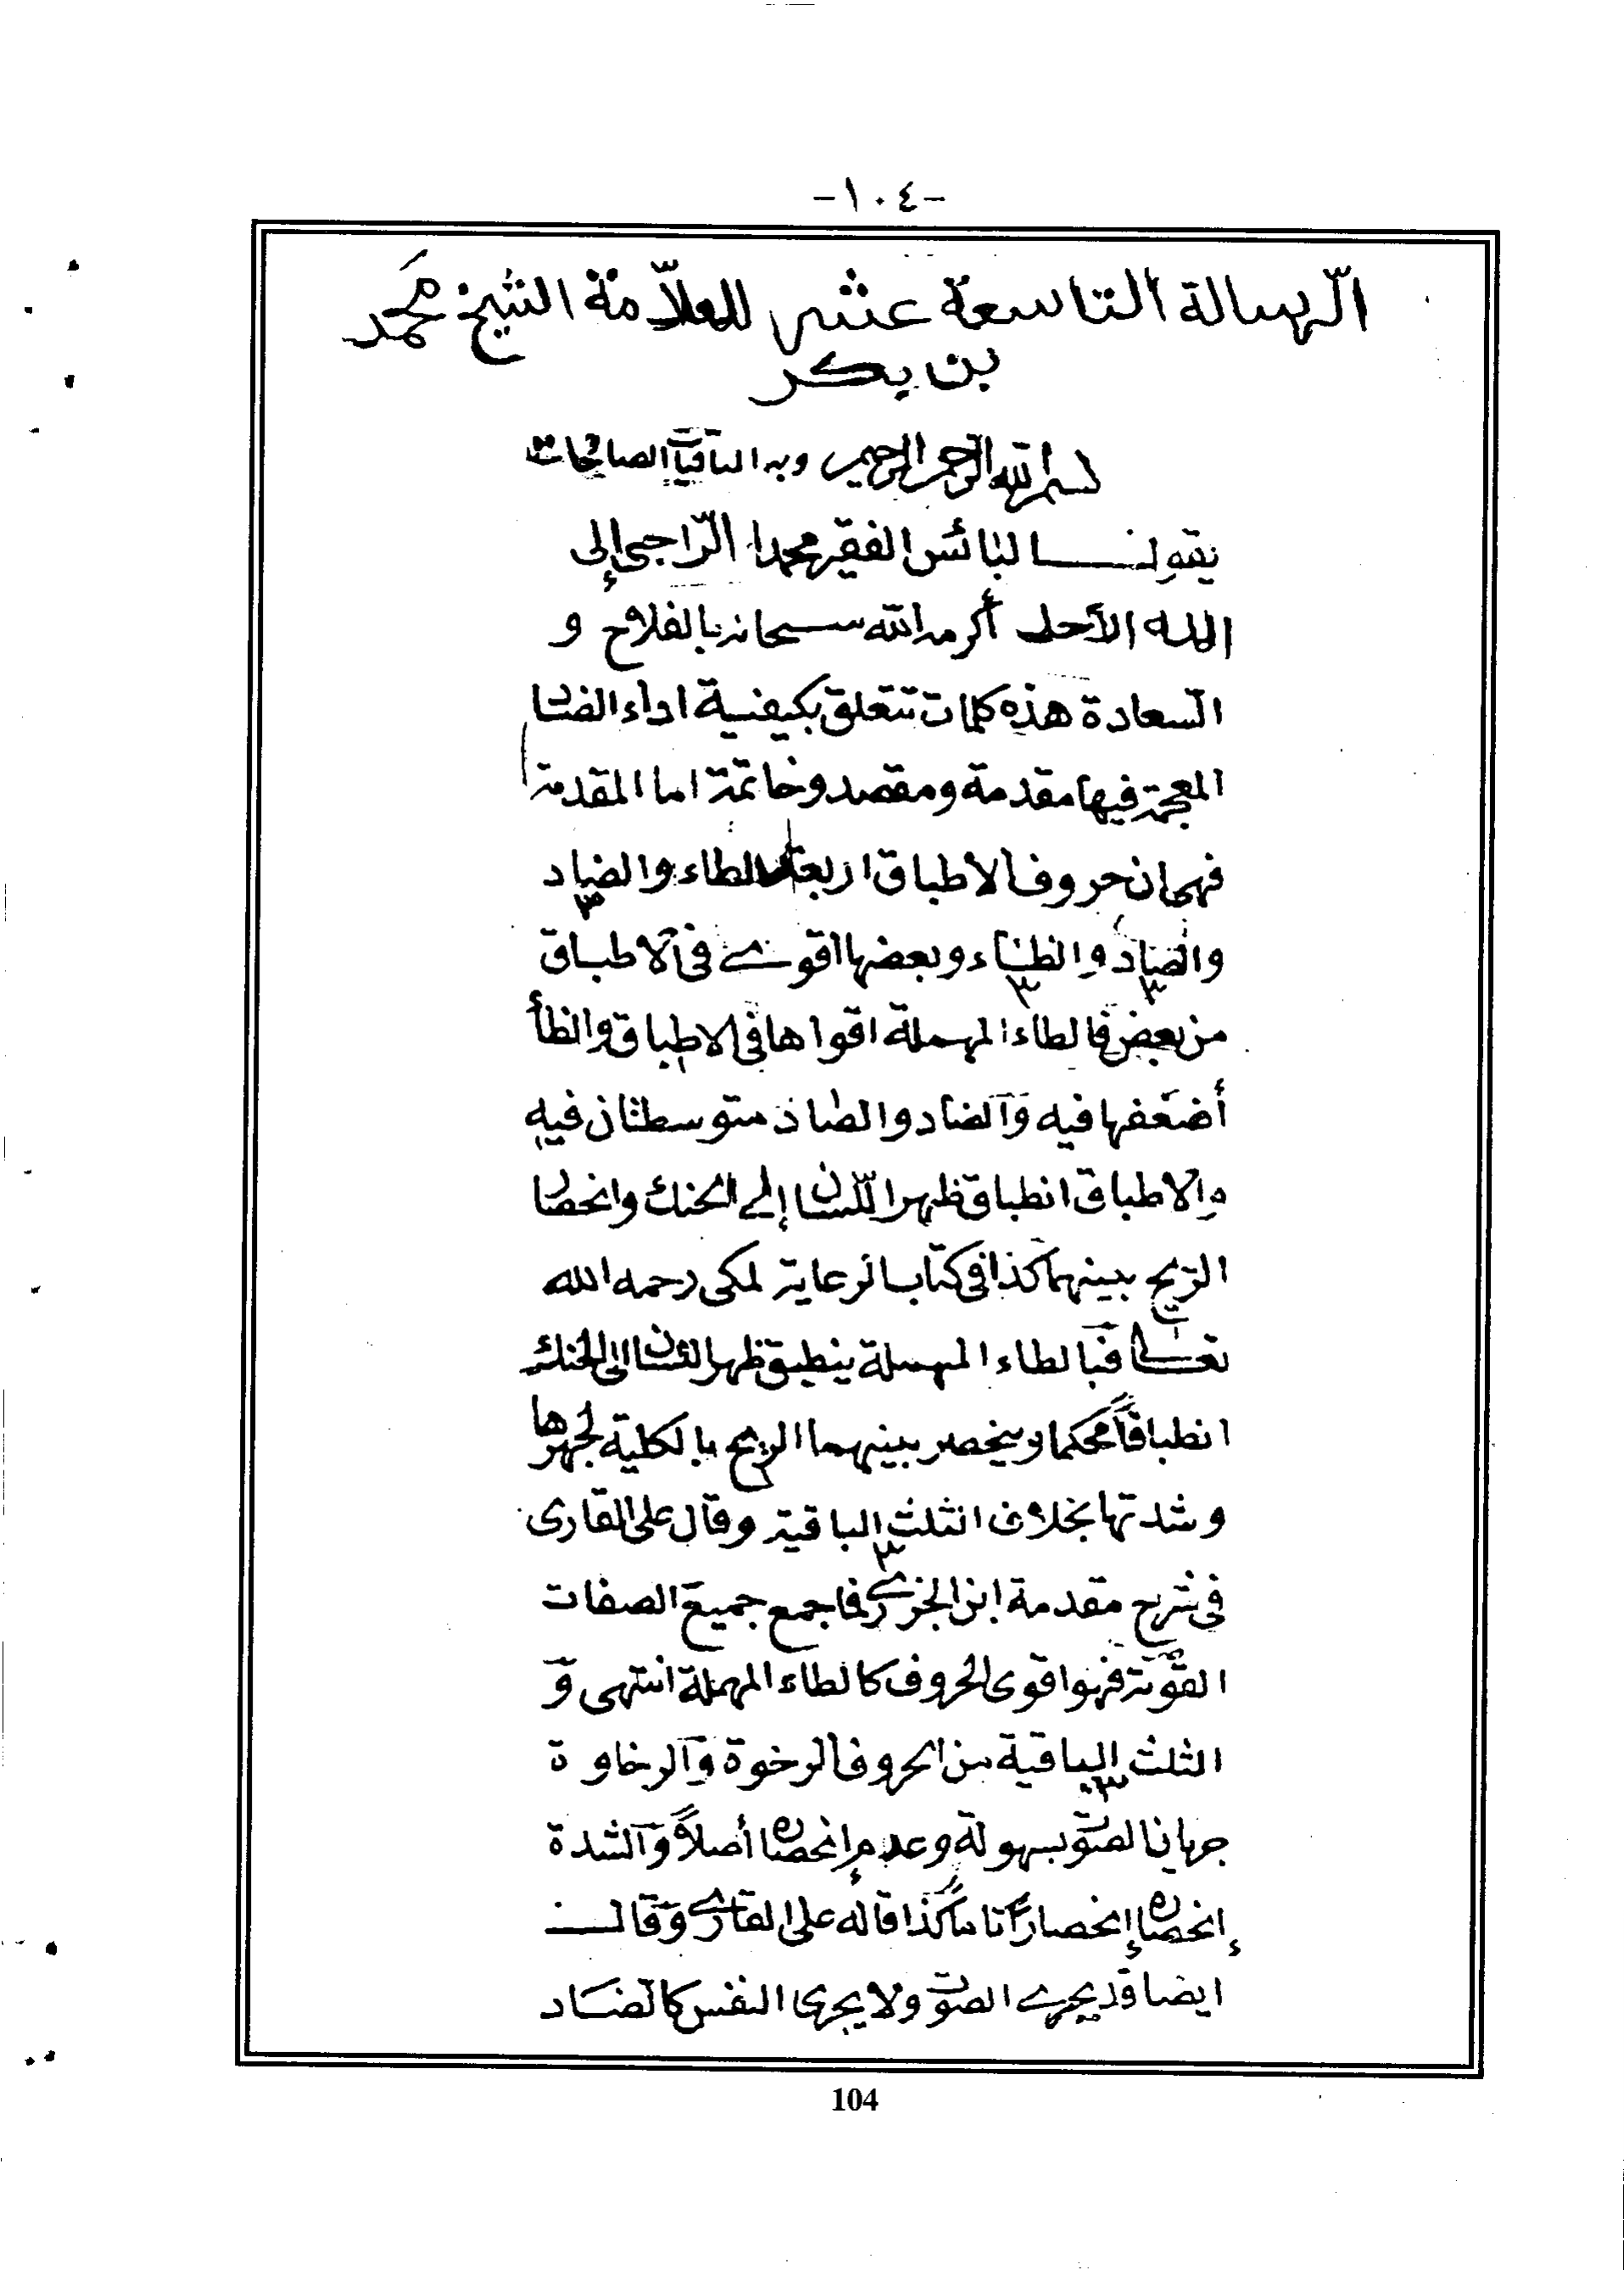 -١٠٤-
الرسالة التاسعة عشر للعلاّمة الشيخ محمد
بن بكر
بسم الله الرحمن الرحيم وبه الباقيات الصالحات
يقول البائس الفقير محمد الرّاجي إلى
الله الأحد أكرمه الله سبحانه بالفلاح و
السعادة هذه كلمات تتعلق بكيفية اداء الضاد
المعجمة فيها مقدمة ومقصد وخاتمة اما المقدمة
فهي ان حروف الاطباق اربعة الطاء والضاد
والصاد والظاء وبعضها اقوى في الاطباق
من بعض فالطاء المهملة اقواها في الاطباق والظأ
أضعفها فيه والضاد والصاد متوسطتان فيه
والاطباق انطباق ظهر اللسان إلى الحنك وانحصار
الريح بينهما كذا في كتاب الرعاية لمكى رحمه الله
تعالى فبالطاء المهملة ينطبق ظهر اللسان الى الحنك
انطباقاً محكما وينحصر بينهما الريح بالكلية لجهرها
وشدتها بخلاف الثلث الباقية وقال على القارى
في شرح مقدمة ابن الجزرى فما جمع جميع الصفات
القوية فهو اقوى الحروف كالطاء المهملة انتهى و
الثلث الباقية من الحروف الرخوة والرخاوة
جريان الصوت بسهولة وعدم إنحصاره أصلاً والشدة
إنحصاره إنحصاراً تاماً كذا قاله على القارى وقال
ايضا قد يجرى الصوت ولا يجرى النفس كالضاد
104